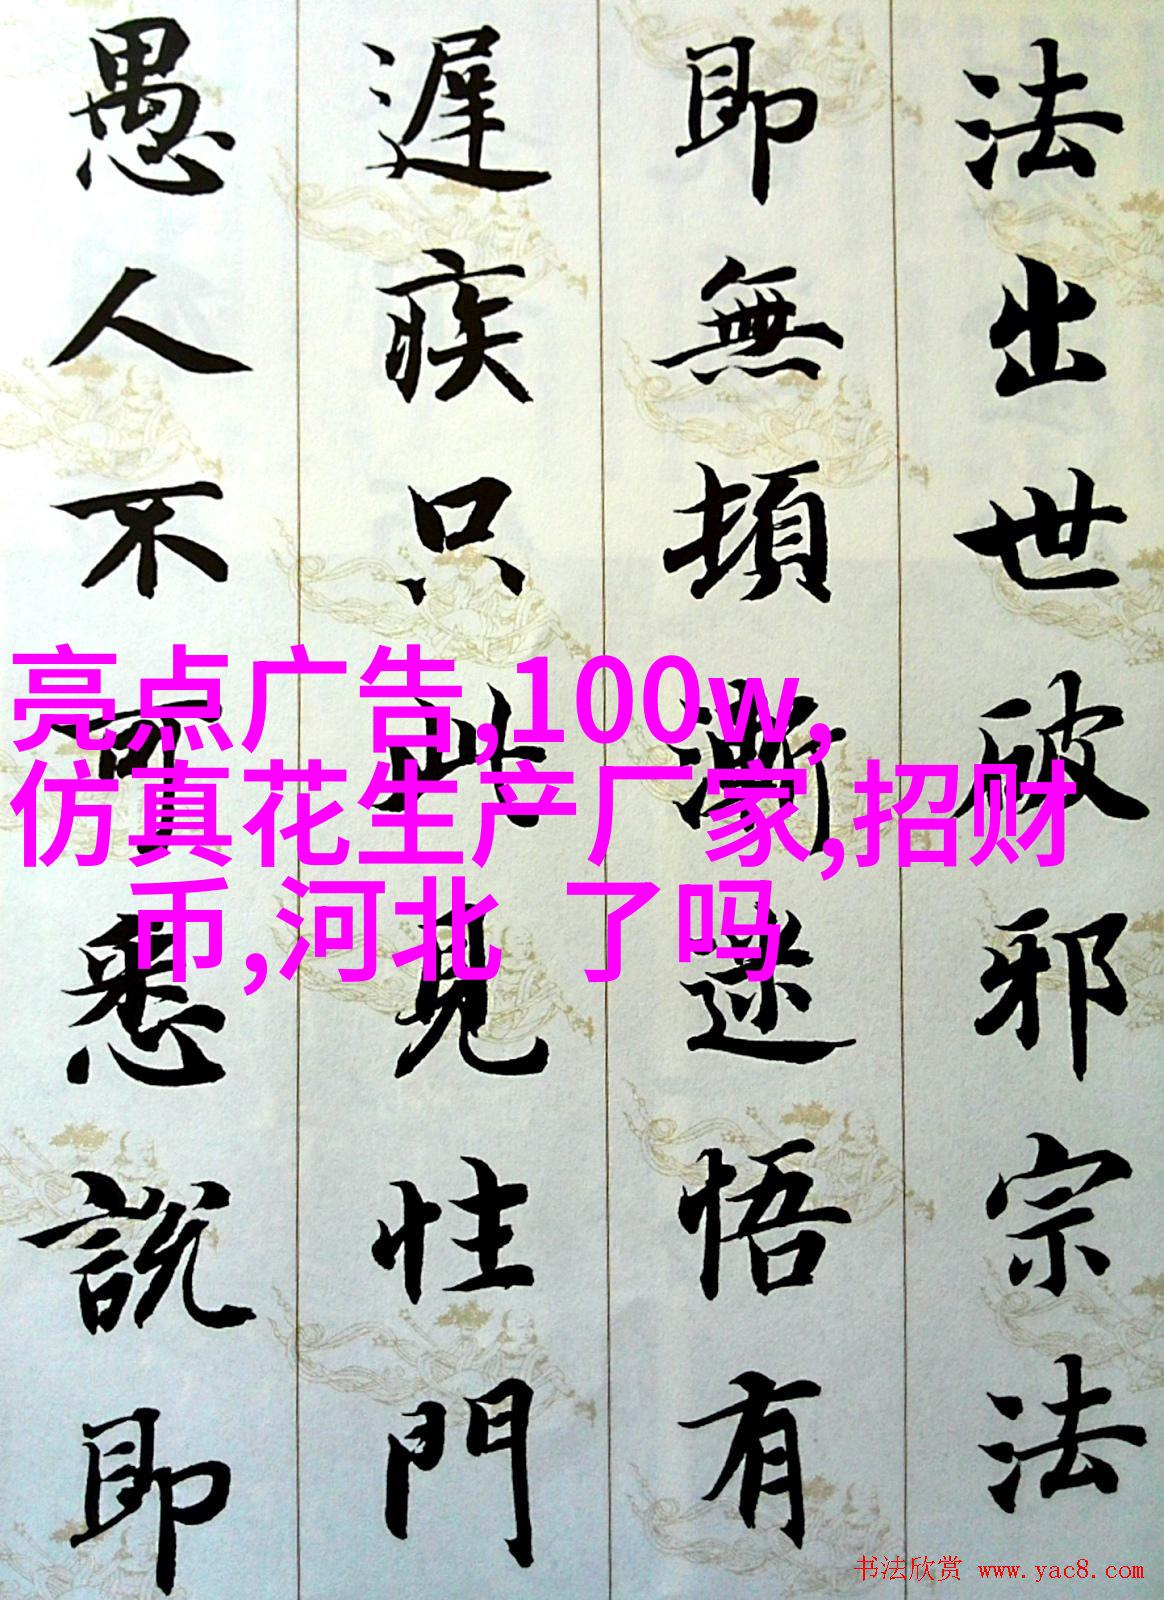 法出世破邪宗法
即無頓漸迷悟有
遲疾只此見性門
愚人不可悉說即
亮点广告,100w,
仿真花生产厂家,招财
币,河北 了吗
书法欣赏 www.yac8.com